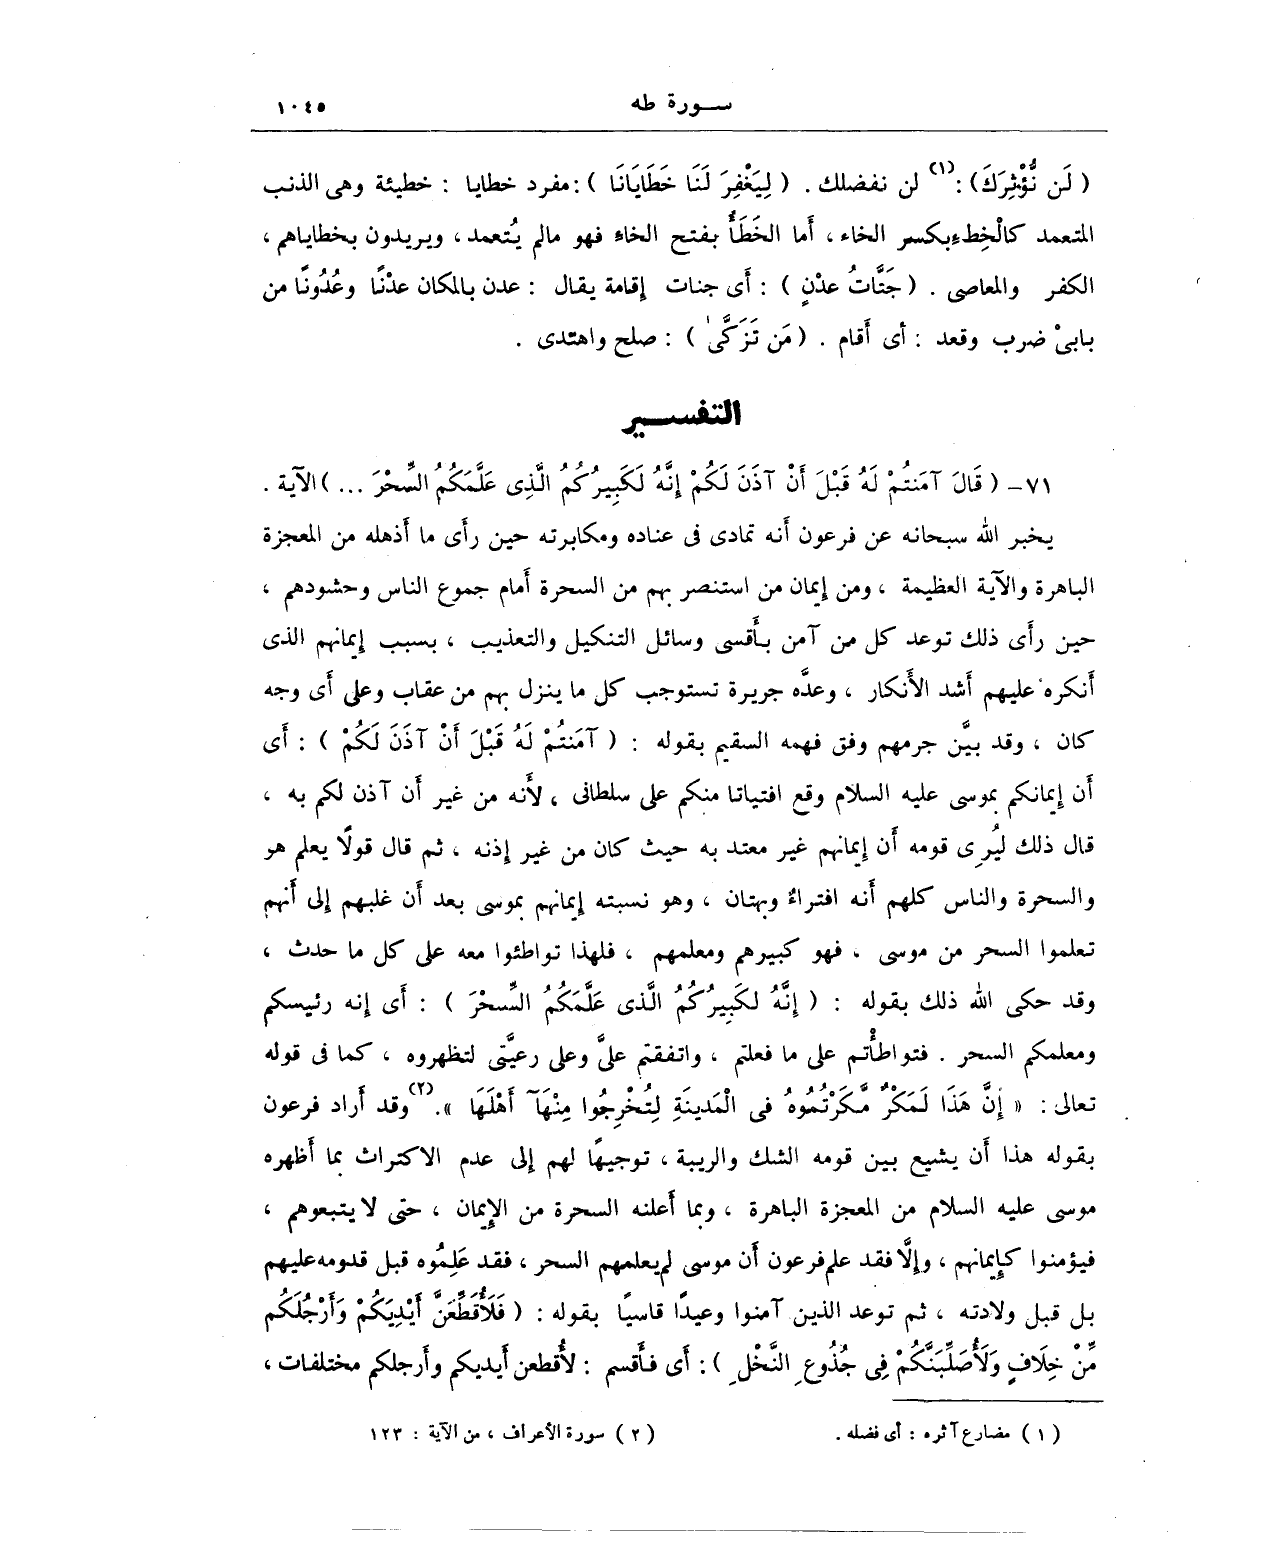 سورة طه ١٠٤٥
( لَن نُّؤْثِرَكَ ) :(١) لن نفضلك . ( لِيَغْفِرَ لَنَا خَطَايَانَا ) : مفرد خطايا : خطيئة وهى الذنب
المتعمد كالْخِطءِ بكسر الخاء ، أما الخَطَأُ بفتح الخاء فهو مالم يُتعمد ، ويريدون بخطاياهم ،
الكفر والمعاصى . ( جَنَّاتُ عدْنٍ ) : أَى جنات إقامة يقال : عدن بالمكان عدْنًا وعُدُونًا من
بابىْ ضرب وقعد : أى أَقام . ( مَن تَزَكَّىٰ ) : صلح واهتدى .
التفسير
٧١- ( قَالَ آمَنتُمْ لَهُ قَبْلَ أَنْ آذَنَ لَكُمْ إِنَّهُ لَكَبِيرُكُمُ الَّذِى عَلَّمَكُمُ السِّحْرَ ... ) الآية .
يخبر الله سبحانه عن فرعون أنه تمادى فى عناده ومكابرته حين رأَى ما أَذهله من المعجزة
الباهرة والآية العظيمة ، ومن إِيمان من استنصر بهم من السحرة أَمام جموع الناس وحشودهم ،
حين رأَى ذلك توعد كل من آمن بأَقسى وسائل التنكيل والتعذيب ، بسبب إِيمانهم الذى
أَنكره عليهم أَشد الأَنكار ، وعدَّه جريرة تستوجب كل ما ينزل بهم من عقاب وعلى أَى وجه
كان ، وقد بيَّن جرمهم وفق فهمه السقيم بقوله : ( آمَنتُمْ لَهُ قَبْلَ أَنْ آذَنَ لَكُمْ ) : أَى
أَن إِيمانكم بموسى عليه السلام وقع افتياتا منكم على سلطانى ، لأَنه من غير أَن آذن لكم به ،
قال ذلك ليُرِى قومه أَن إِيمانهم غير معتد به حيث كان من غير إِذنه ، ثم قال قولًا يعلم هو
والسحرة والناس كلهم أَنه افتراءٌ وبهتان ، وهو نسبته إِيمانهم بموسى بعد أَن غلبهم إِلى أَنهم
تعلموا السحر من موسى ، فهو كبيرهم ومعلمهم ، فلهذا تواطئوا معه على كل ما حدث ،
وقد حكى الله ذلك بقوله : ( إِنَّهُ لكَبِيرُكُمُ الَّذى عَلَّمَكُمُ السِّحْرَ ) : أَى إِنه رئيسكم
ومعلمكم السحر . فتواطأْتم على ما فعلتم ، واتفقتم علىَّ وعلى رعيَّتى لتظهروه ، كما فى قوله
تعالى : « إِنَّ هَذَا لَمَكْرٌ مَّكَرْتُمُوهُ فى الْمَدينَةِ لِتُخْرِجُوا مِنْهَآ أَهْلَهَا ».(٢) وقد أَراد فرعون
بقوله هذا أَن يشيع بين قومه الشك والريبة ، توجيهًا لهم إلى عدم الاكتراث بما أَظهره
موسى عليه السلام من المعجزة الباهرة ، وبما أَعلنه السحرة من الإِيمان ، حتى لا يتبعوهم ،
فيؤمنوا كإِيمانهم ، وإِلَّا فقد علم فرعون أَن موسى لم يعلمهم السحر ، فقد عَلِمُوه قبل قدومه عليهم
بل قبل ولادته ، ثم توعد الذين آمنوا وعيدًا قاسيًا بقوله : ( فَلَأُقَطِّعَنَّ أَيْدِيَكُمْ وَأَرْجُلَكُم
مِّنْ خِلَافٍ وَلَأُصَلِّبَنَّكُمْ فِى جُذُوعِ النَّخْلِ ) : أَى فأُقسم : لأُقطعن أَيديكم وأَرجلكم مختلفات ،
( ١ ) مضارع آثره : أى فضله .
( ٢ ) سورة الأعراف ، من الآية : ١٢٣